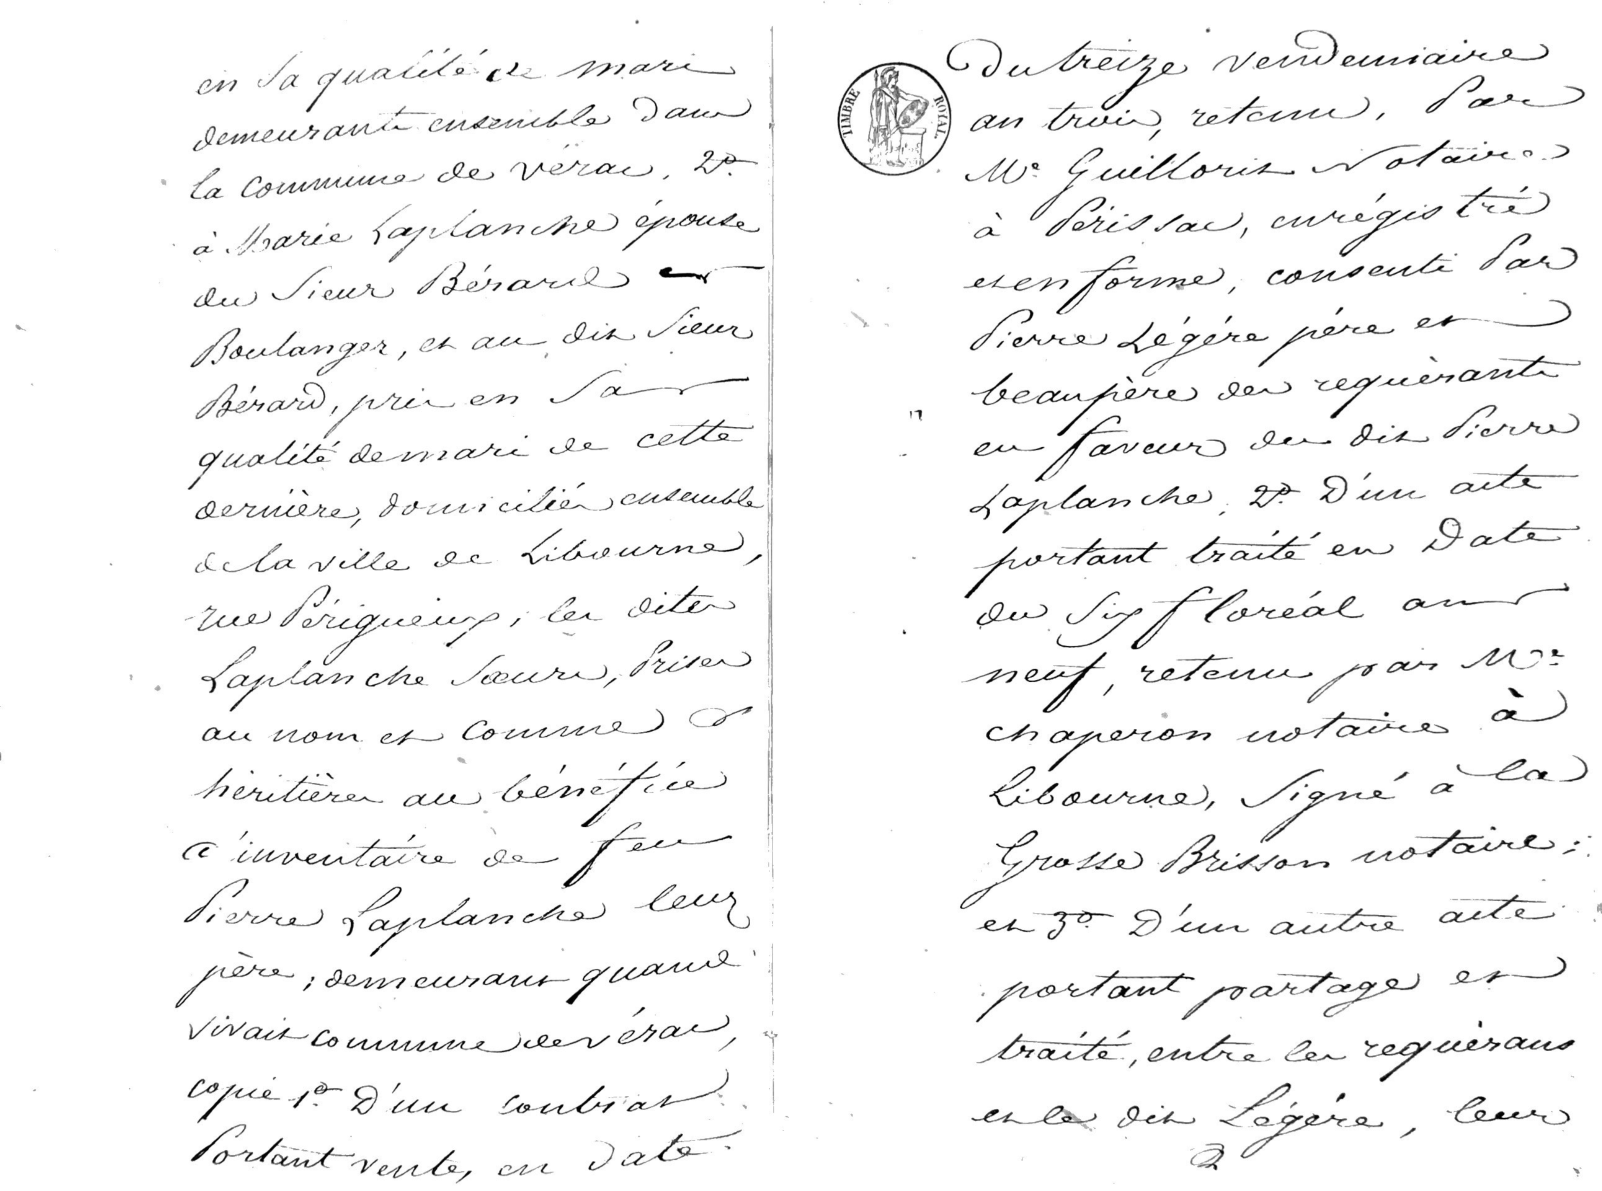 en Sa qualité de mari
demeurants ensemble Dans
la commune de vérac, 2°.
à Marie Laplanche épouse
du Sieur Bérard
Boulanger, et au dit Sieur
Bérard, pris en Sa
qualité de mari de cette
dernière, domiciliés ensemble
de la ville de Libourne,
rue Périgueux; les dites
Laplanche Sœurs, Prises
au nom et comme
héritières au bénéfice
d'inventaire de feu
Pierre Laplanche leur
père; demeurant quand
vivait commune de vérac,
copie 1°. D'un contrat
Portant vente, en Date
TIMBRE ROYAL
Du treize vendemiaire
an trois, retenu, Par
Me. Guillorit Notaire
à Périssac, enrégistré
et en forme, consenti Par
Pierre Légére père et
beaupère des requèrants
en faveur du dit Pierre
Laplanche, 2°. D'un acte
portant traité en Date
du Six floréal an
neuf, retenu par Mr.
chaperon notaire à
Libourne, Signé à la
Grosse Brisson notaire;
et 3°. D'un autre acte
portant partage et
traité, entre les requèrans
et le dit Légére, leur